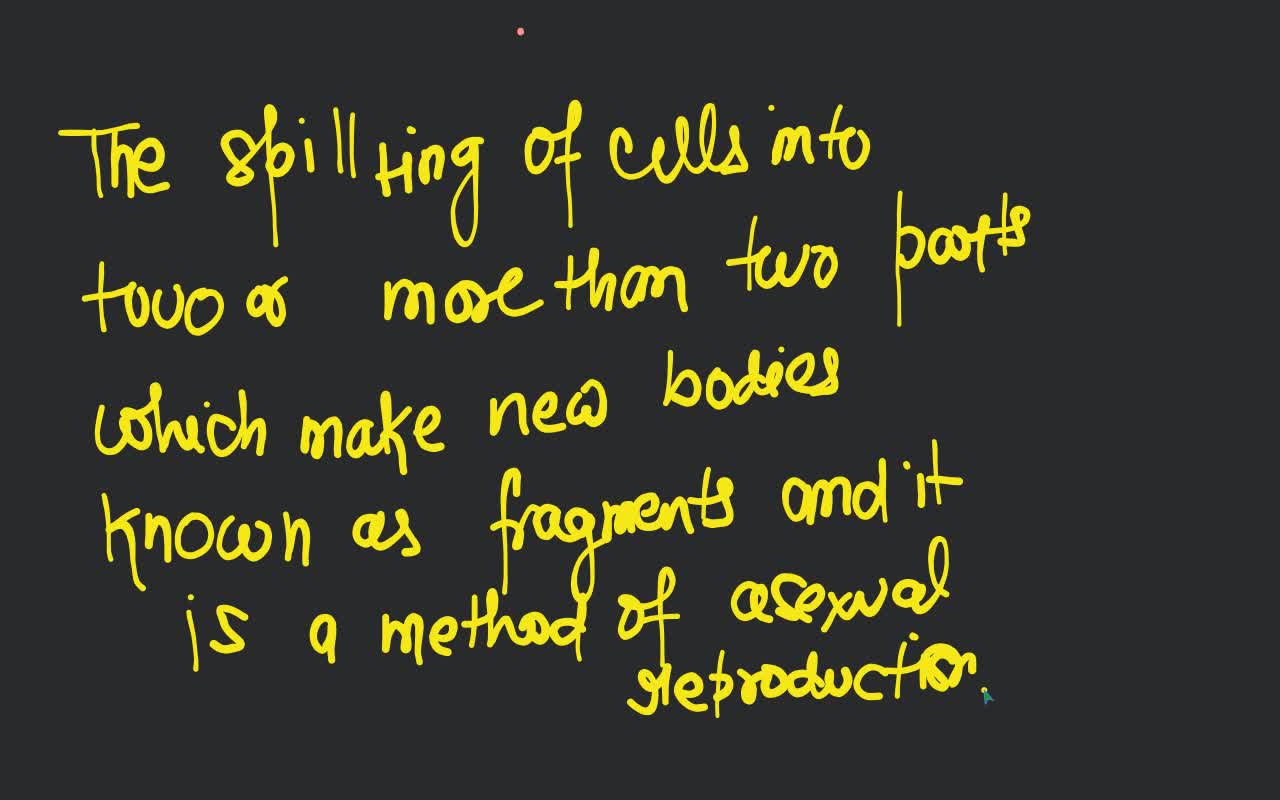 The spillting of cells into
two or more than two parts
which make new bodies
known as fragments and it
is a method of asexual
reproduction.